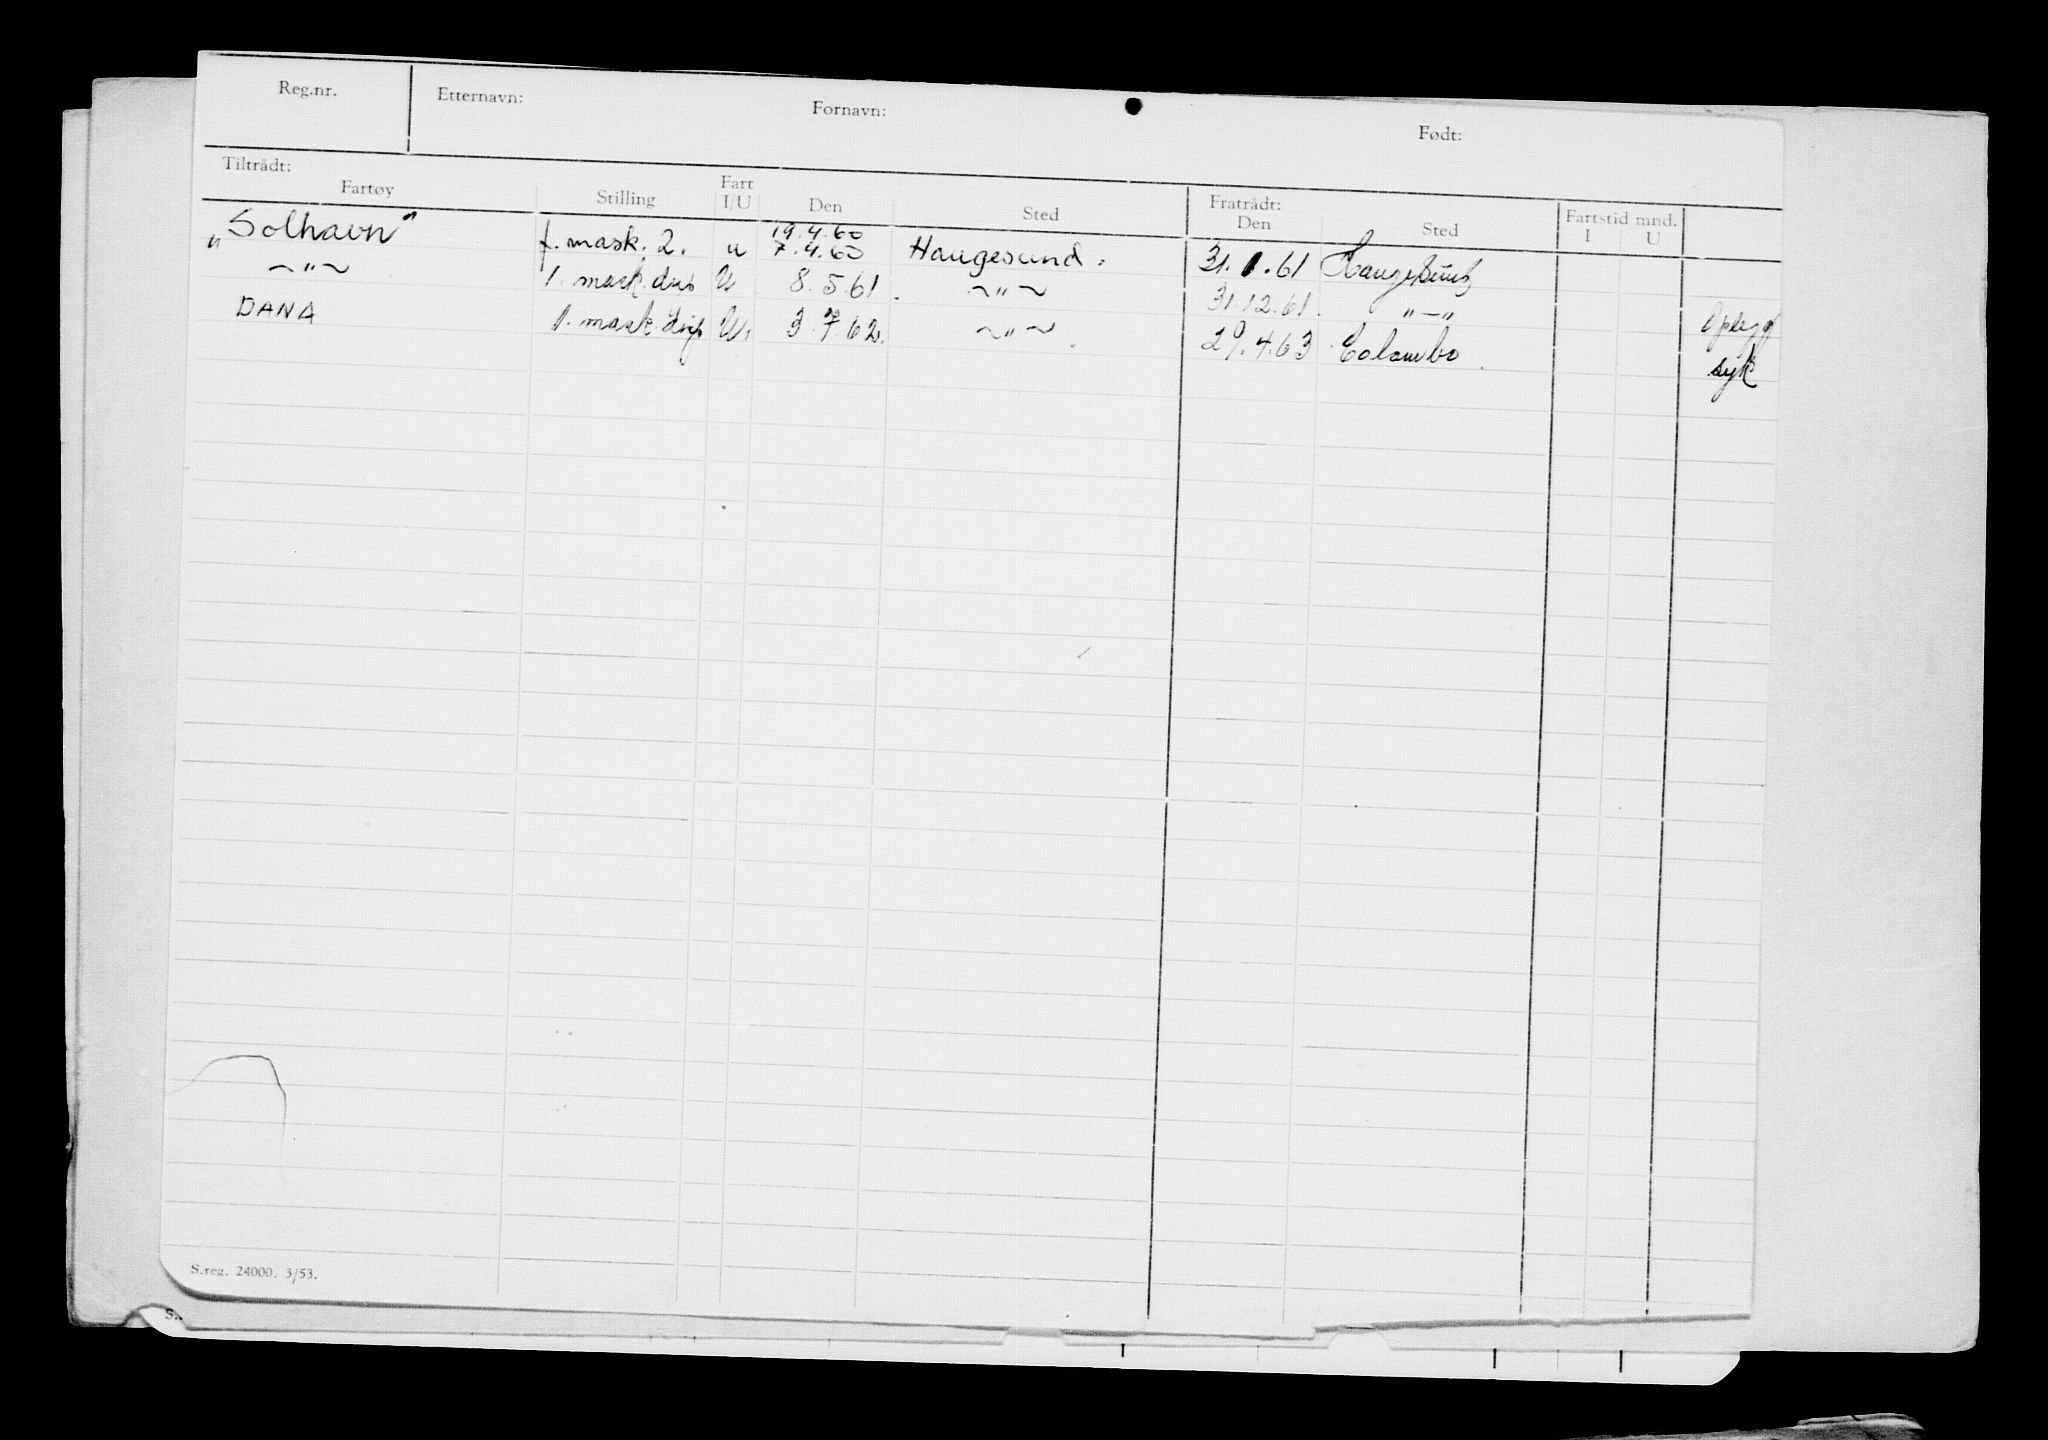 Reg.nr. Etternavn: Fornavn: Født:
Tiltrådt: Fratrådt:
Fartøy Stilling Fart I/U Den Sted Den Sted Fartstid mnd. I U
19.4.60
„Solhavn" f. mask. 2. u 7.4.60 Haugesund. 31.1.61 Haugesund
~"~ 1. mask. disp U 8.5.61. ~"~ 31.12.61. "—" Oplegg
DANA 1. mask. disp U. 3.7.62. ~"~ 29.4.63 Colombo. syk
S.reg. 24000. 3/53.
S.